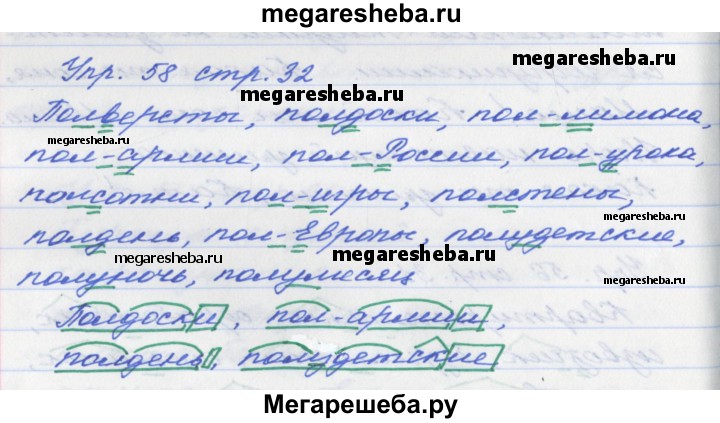 megaresheba.ru
Упр. 58 стр. 32
megaresheba.ru
megaresheba.ru
Полверсты, полдоски, пол-лимона,
megaresheba.ru
megaresheba.ru
пол-армии, пол-России, пол-урока,
полсотни, пол-игры, полстены,
megaresheba.ru
полдень, пол-Европы, полудетские,
полуночь, полумесяц
megaresheba.ru
Полдоски, пол-армии,
полдень, полудетские
megaresheba.ru
Мегарешеба.ру